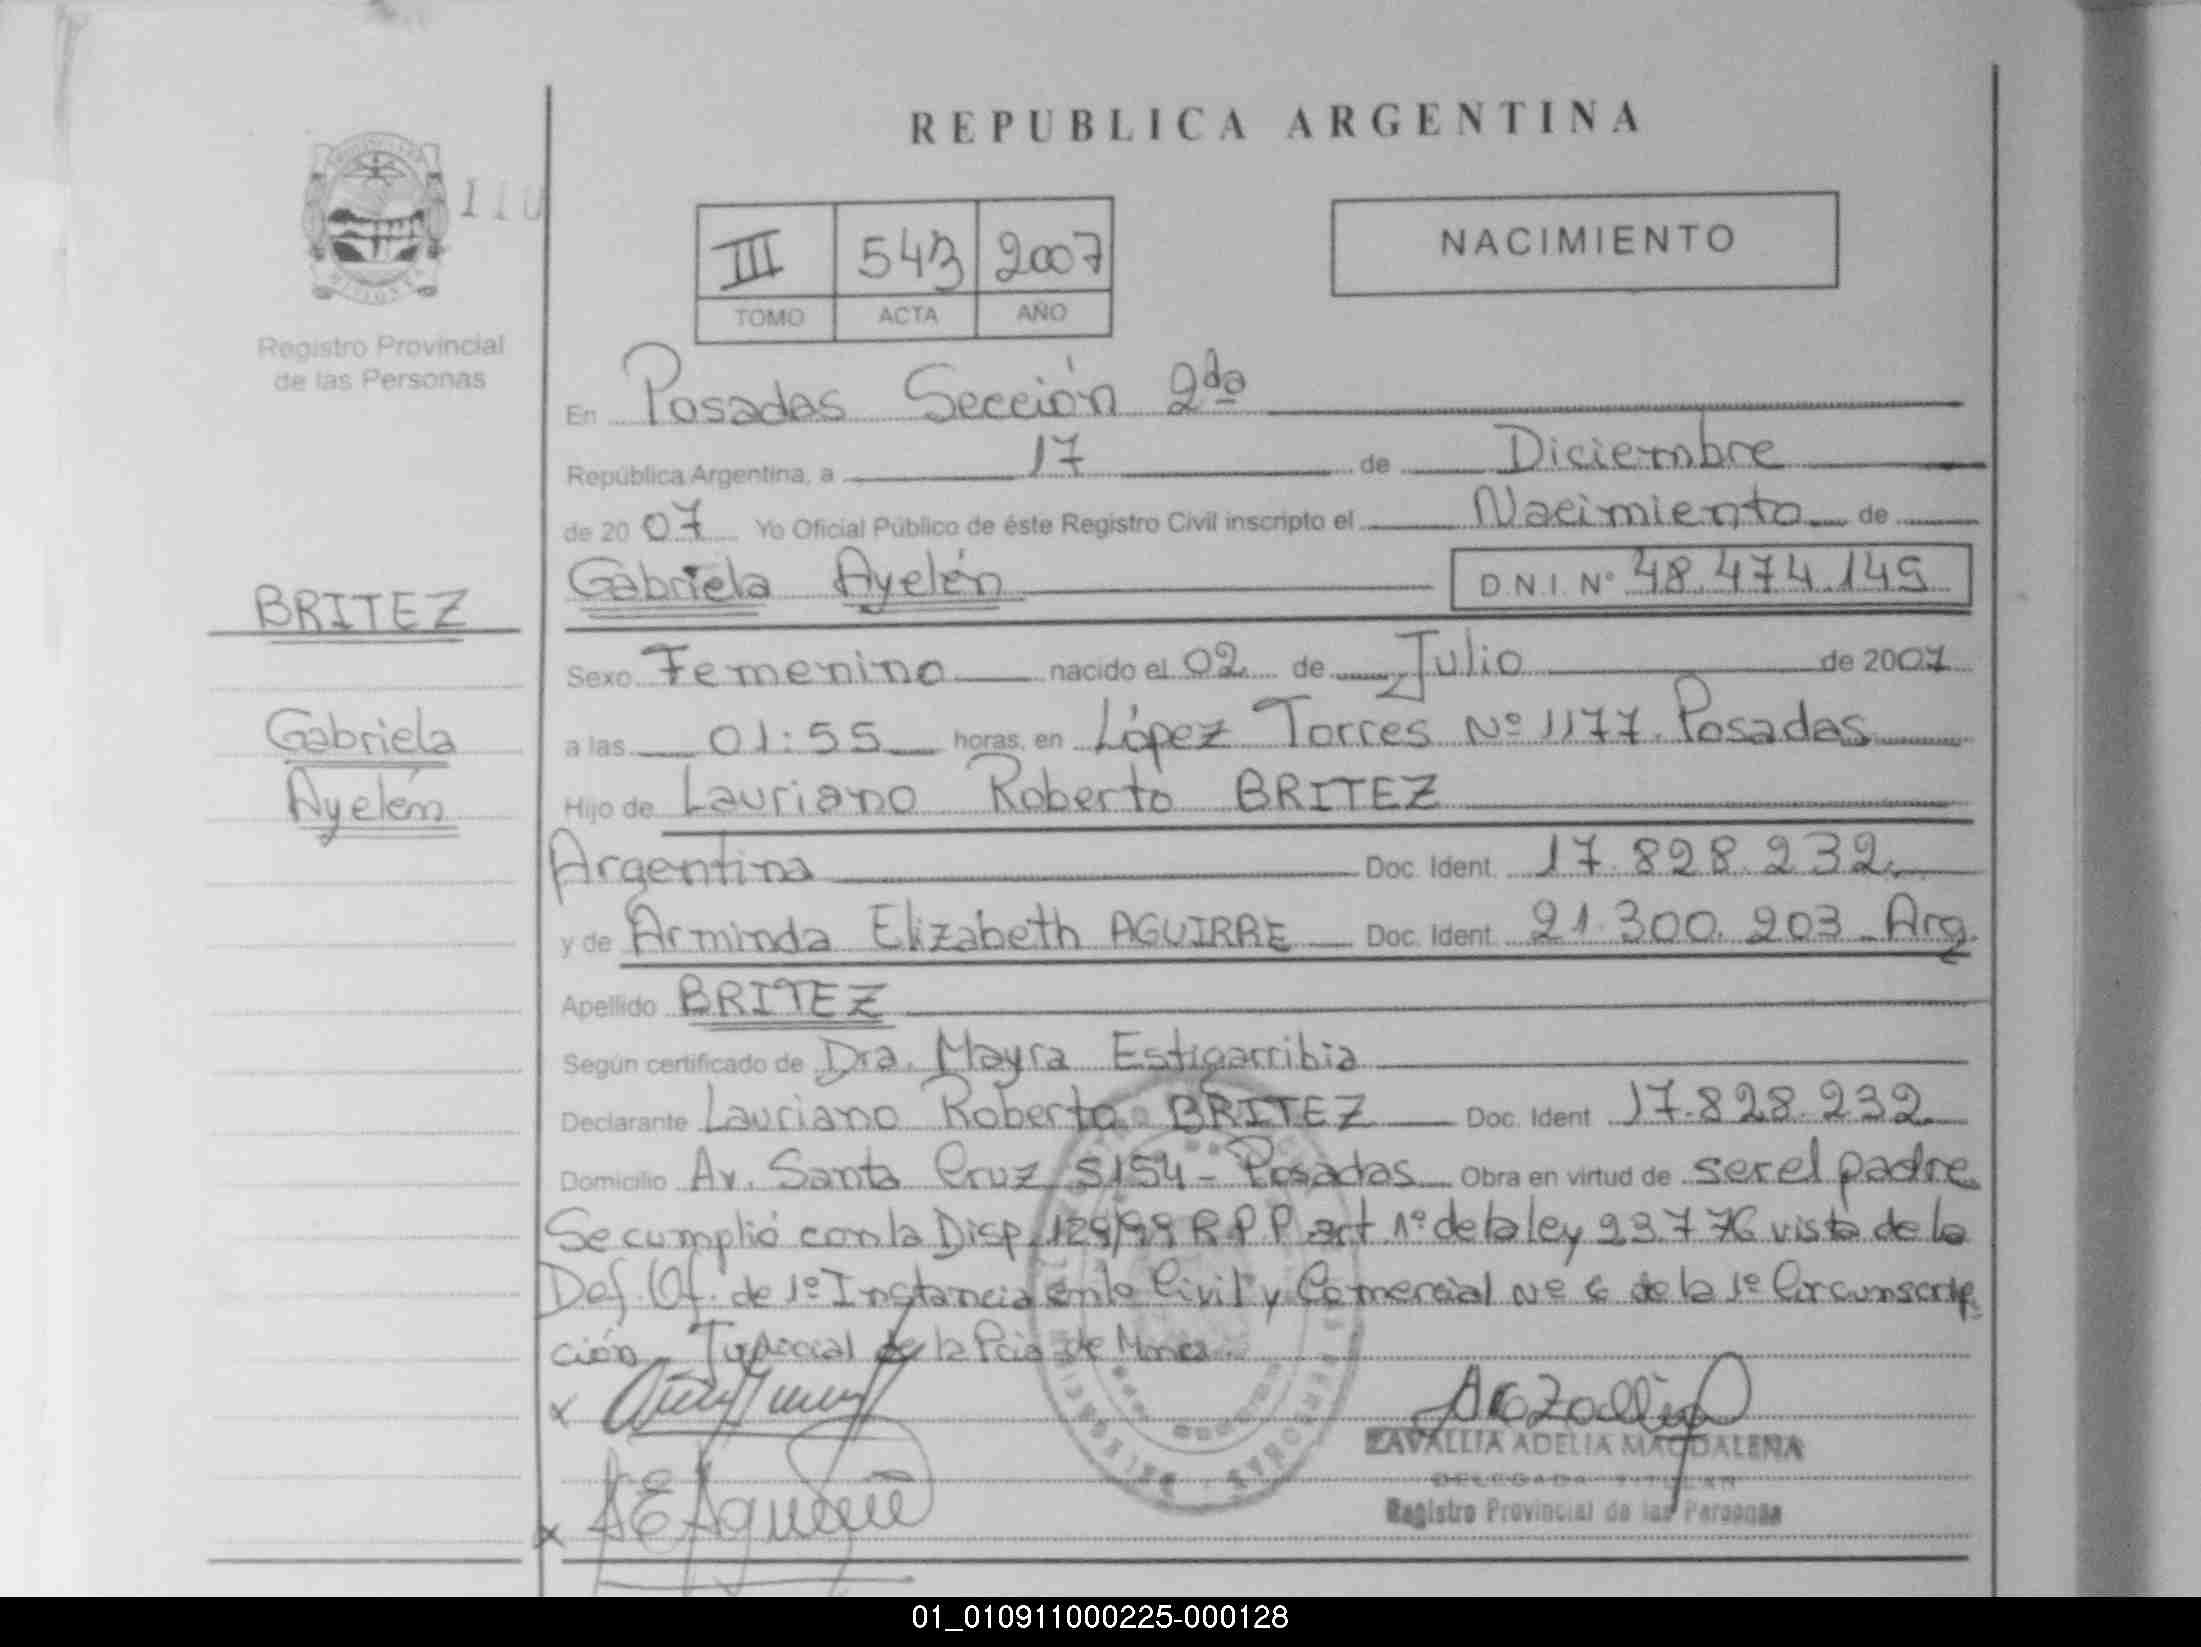 REPUBLICA ARGENTINA
NACIMIENTO
III 543 2007
TOMO ACTA AÑO
Registro Provincial
de las Personas
En Posadas Sección 2da
República Argentina, a 17 de Diciembre
de 2007 Yo Oficial Público de éste Registro Civil inscripto el Nacimiento de
Gabriela Ayelén D.N.I. Nº 48.474.145
BRITEZ
Gabriela
Ayelén
Sexo Femenino nacido el 02 de Julio de 2007
a las 01:55 horas, en López Torres Nº 1177 Posadas
Hijo de Lauriano Roberto BRITEZ
Argentina Doc. Ident. 17.828.232
y de Arminda Elizabeth AGUIRRE Doc. Ident. 21.300.203 Arg.
Apellido BRITEZ
Según certificado de Dra. Mayra Estigarribia
Declarante Lauriano Roberto BRITEZ Doc. Ident 17.828.232
Domicilio Av. Santa Cruz 5154 - Posadas Obra en virtud de ser el padre
Se cumplió con la Disp. 129/99 R P P art 1º de la ley 23.776 vista de la
Def. Of. de 1º Instancia en lo Civil y Comercial Nº 6 de la 1º Circunscrip
ción de la Pcia de
ZAVALLIA ADELIA MAGDALENA
DELEGADA TITULAR
Registro Provincial de las Personas
01_010911000225-000128